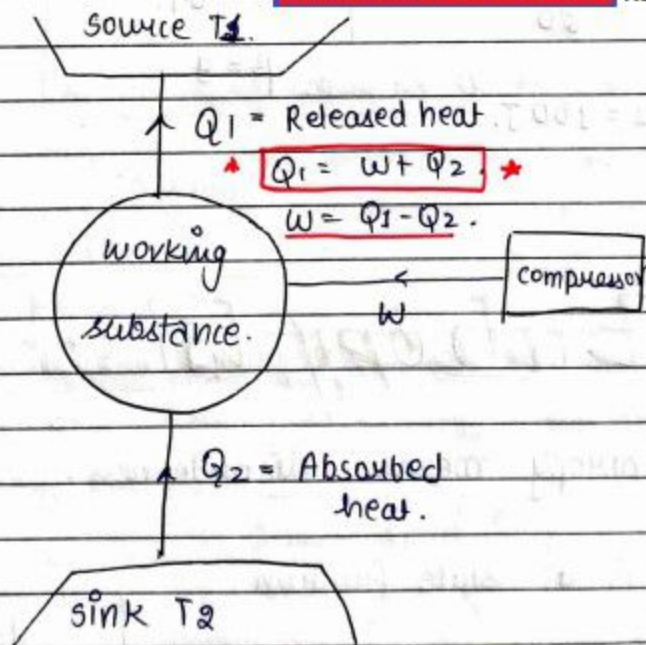 Source T1.
Q1 = Released heat.
Q1 = W + Q2.
W = Q1 - Q2.
working
substance.
compressor
W
Q2 = Absorbed
heat.
Sink T2